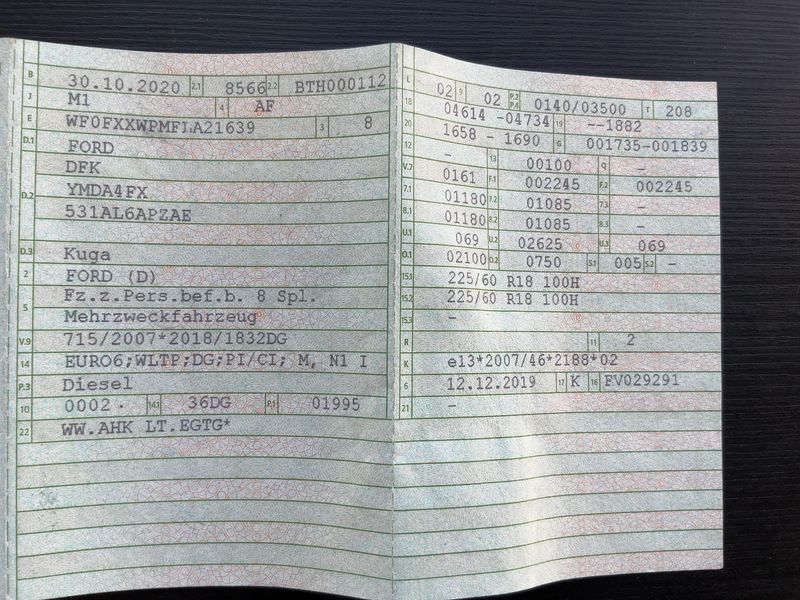 B 30.10.2020 2.1 8566 2.2 BTH000112
J M1 4 AF
E WF0FXXWPMFLA21639 3 8
D.1 FORD
DFK
D.2 YMDA4FX
531AL6APZAE
D.3 Kuga
2 FORD (D)
5 Fz.z.Pers.bef.b. 8 Spl.
Mehrzweckfahrzeug
V.9 715/2007*2018/1832DG
14 EURO6;WLTP;DG;PI/CI; M, N1 I
P.3 Diesel
10 0002 14.1 36DG P.1 01995
22 WW.AHK LT.EGTG*
L 02 9 02 P.2 P.4 0140/03500 T 208
18 04614 -04734 19 --1882
20 1658 - 1690 G 001735-001839
12 - 13 00100 Q -
V.7 0161 F.1 002245 F.2 002245
7.1 01180 7.2 01085 7.3 -
8.1 01180 8.2 01085 8.3 -
U.1 069 U.2 02625 U.3 069
O.1 02100 O.2 0750 S.1 005 S.2 -
15.1 225/60 R18 100H
15.2 225/60 R18 100H
15.3 -
R 11 2
K e13*2007/46*2188*02
6 12.12.2019 17 K 16 FV029291
21 -